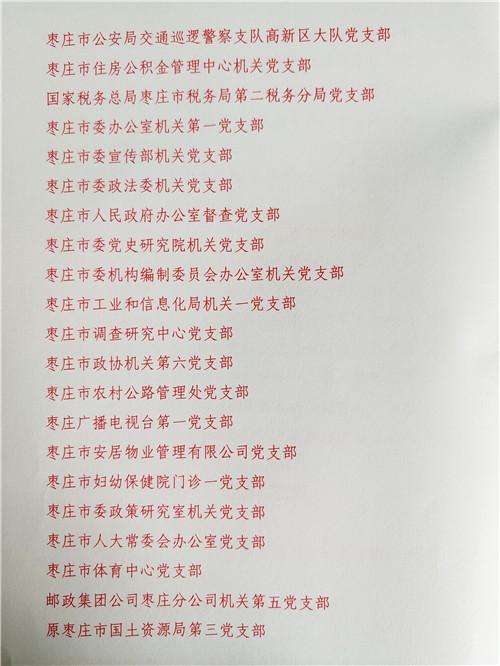 枣庄市公安局交通巡逻警察支队高新区大队党支部
枣庄市住房公积金管理中心机关党支部
国家税务总局枣庄市税务局第二税务分局党支部
枣庄市委办公室机关第一党支部
枣庄市委宣传部机关党支部
枣庄市委政法委机关党支部
枣庄市人民政府办公室督查党支部
枣庄市委党史研究院机关党支部
枣庄市委机构编制委员会办公室机关党支部
枣庄市工业和信息化局机关一党支部
枣庄市调查研究中心党支部
枣庄市政协机关第六党支部
枣庄市农村公路管理处党支部
枣庄广播电视台第一党支部
枣庄市安居物业管理有限公司党支部
枣庄市妇幼保健院门诊一党支部
枣庄市委政策研究室机关党支部
枣庄市人大常委会办公室党支部
枣庄市体育中心党支部
邮政集团公司枣庄分公司机关第五党支部
原枣庄市国土资源局第三党支部